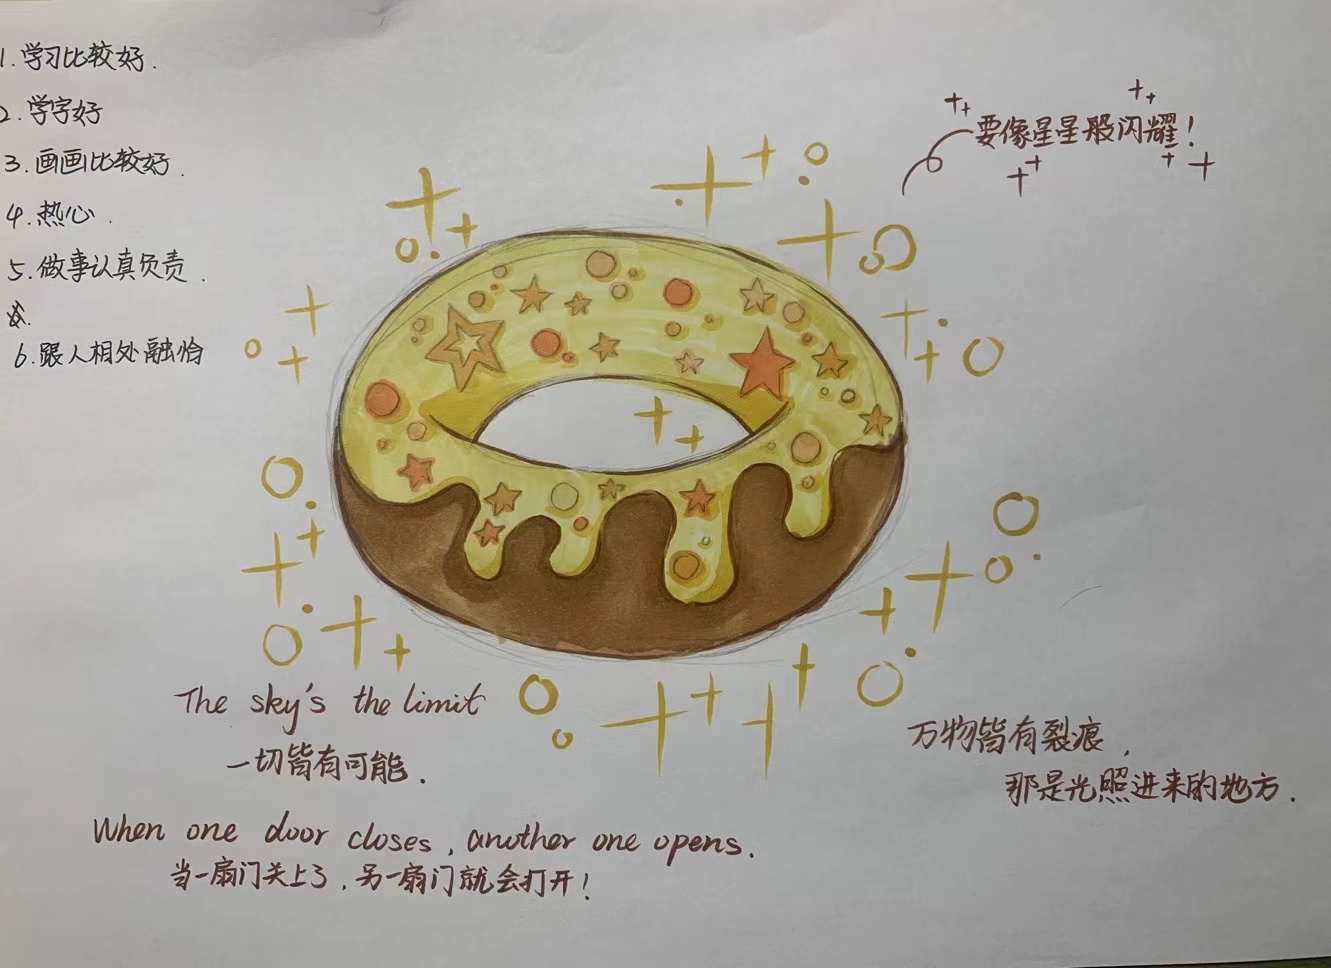 1.学习比较好.
2.学字好
3.画画比较好.
4.热心.
5.做事认真负责.
6.跟人相处融恰
要像星星般闪耀!
The sky's the limit
一切皆有可能.
万物皆有裂痕,
那是光照进来的地方.
When one door closes, another one opens.
当一扇门关上了,另一扇门就会打开!